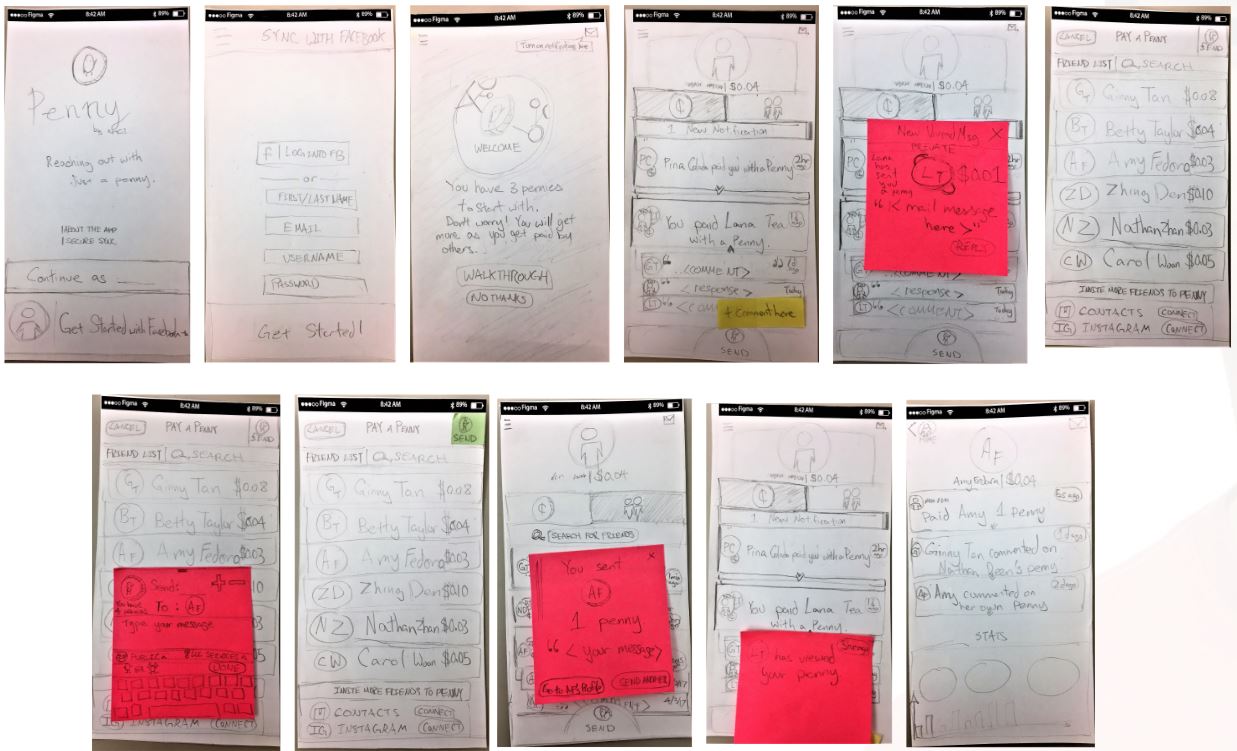 Figma 8:42 AM 89%
Penny
Reaching out with
just a penny.
Continue as
Get Started with Facebook
Figma 8:42 AM 89%
SYNC WITH FACEBOOK
f | LOG INTO FB
or
FIRST/LAST NAME
EMAIL
USERNAME
PASSWORD
Get Started!
Figma 8:42 AM 89%
Turn on notifications here
WELCOME
You have 3 pennies
to start with.
Don't worry! You will get
more as you get paid by
others.
WALKTHROUGH
NO THANKS
Figma 8:42 AM 89%
$0.04
1 New Notification
PC
Pina Colada paid you with a Penny
2hr
You paid Lana Tea
with a Penny.
GT
<COMMENT>
2d
ago
<response>
Today
LT
+ Comment here
SEND
Figma 8:42 AM 89%
$0.04
New Unread Msg X
PRIVATE
Lana
has
sent
you
a penny
LT $0.01
"< mail message
here >"
REPLY
<COMMENT>
<response>
Today
LT
<COMMENT>
Today
SEND
Figma 8:42 AM 89%
CANCEL PAY A PENNY SEND
FRIEND LIST | SEARCH
GT Ginny Tan $0.08
BT Betty Taylor $0.04
AF Amy Fedora $0.03
ZD Zhing Den $0.10
NZ Nathan Zhan $0.03
CW Carol Woon $0.05
INVITE MORE FRIENDS TO PENNY
CONTACTS CONNECT
IG INSTAGRAM CONNECT
Figma 8:42 AM 89%
CANCEL PAY A PENNY SEND
FRIEND LIST | SEARCH
GT Ginny Tan $0.08
BT Betty Taylor $0.04
AF Amy Fedora $0.03
Send: + −
To: AF
Type your message
DONE
INSTAGRAM CONNECT
Figma 8:42 AM 89%
CANCEL PAY A PENNY SEND
FRIEND LIST | SEARCH
GT Ginny Tan $0.08
BT Betty Taylor $0.04
AF Amy Fedora $0.03
ZD Zhing Den $0.10
NZ Nathan Zhan $0.03
CW Carol Woon $0.05
INVITE MORE FRIENDS TO PENNY
CONTACTS CONNECT
IG INSTAGRAM CONNECT
Figma 8:42 AM 89%
$0.04
SEARCH FOR FRIENDS
You sent
x
AF
1 penny
"< your message>
Go to AF's Profile
SEND ANOTHER
SEND
Figma 8:42 AM 89%
$0.04
1 New Notification
PC
Pina Colada paid you with a Penny
2hr
You paid Lana Tea
with a Penny.
LT has viewed
your penny
5m ago
Figma 8:42 AM 89%
AF
Amy Fedora | $0.04
Paid Amy 1 penny
Ginny Tan commented on
Nathan Been's penny
Amy commented on
her own Penny
2 days
STATS